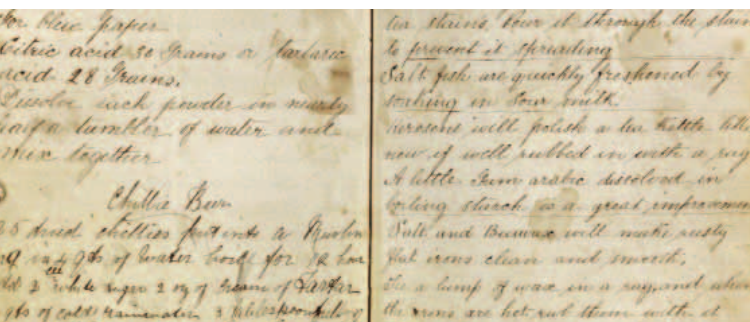 for blue paper
Citric acid 30 Grains or tartaric
acid 28 Grains.
Dissolve each powder in nearly
half a tumbler of water and
mix together
Chillie Beer
25 dried chillies put into a Muslin
in 4 qts of Water boil for 1/2 hour
2 white sugar 2 oz of Cream of Tartar
qts of cold rainwater 3 tablespoonfuls of
tea stains, pour it through the stain
to prevent it spreading
Salt fish are quickly freshened by
soaking in sour milk.
Kerosene will polish a tea kettle like
new if well rubbed in with a rag
A little Gum arabic dissolved in
boiling starch is a great improvement
Salt and Beeswax will make rusty
flat irons clean and smooth.
Tie a lump of wax in a rag, and when
the irons are hot, rub them with it